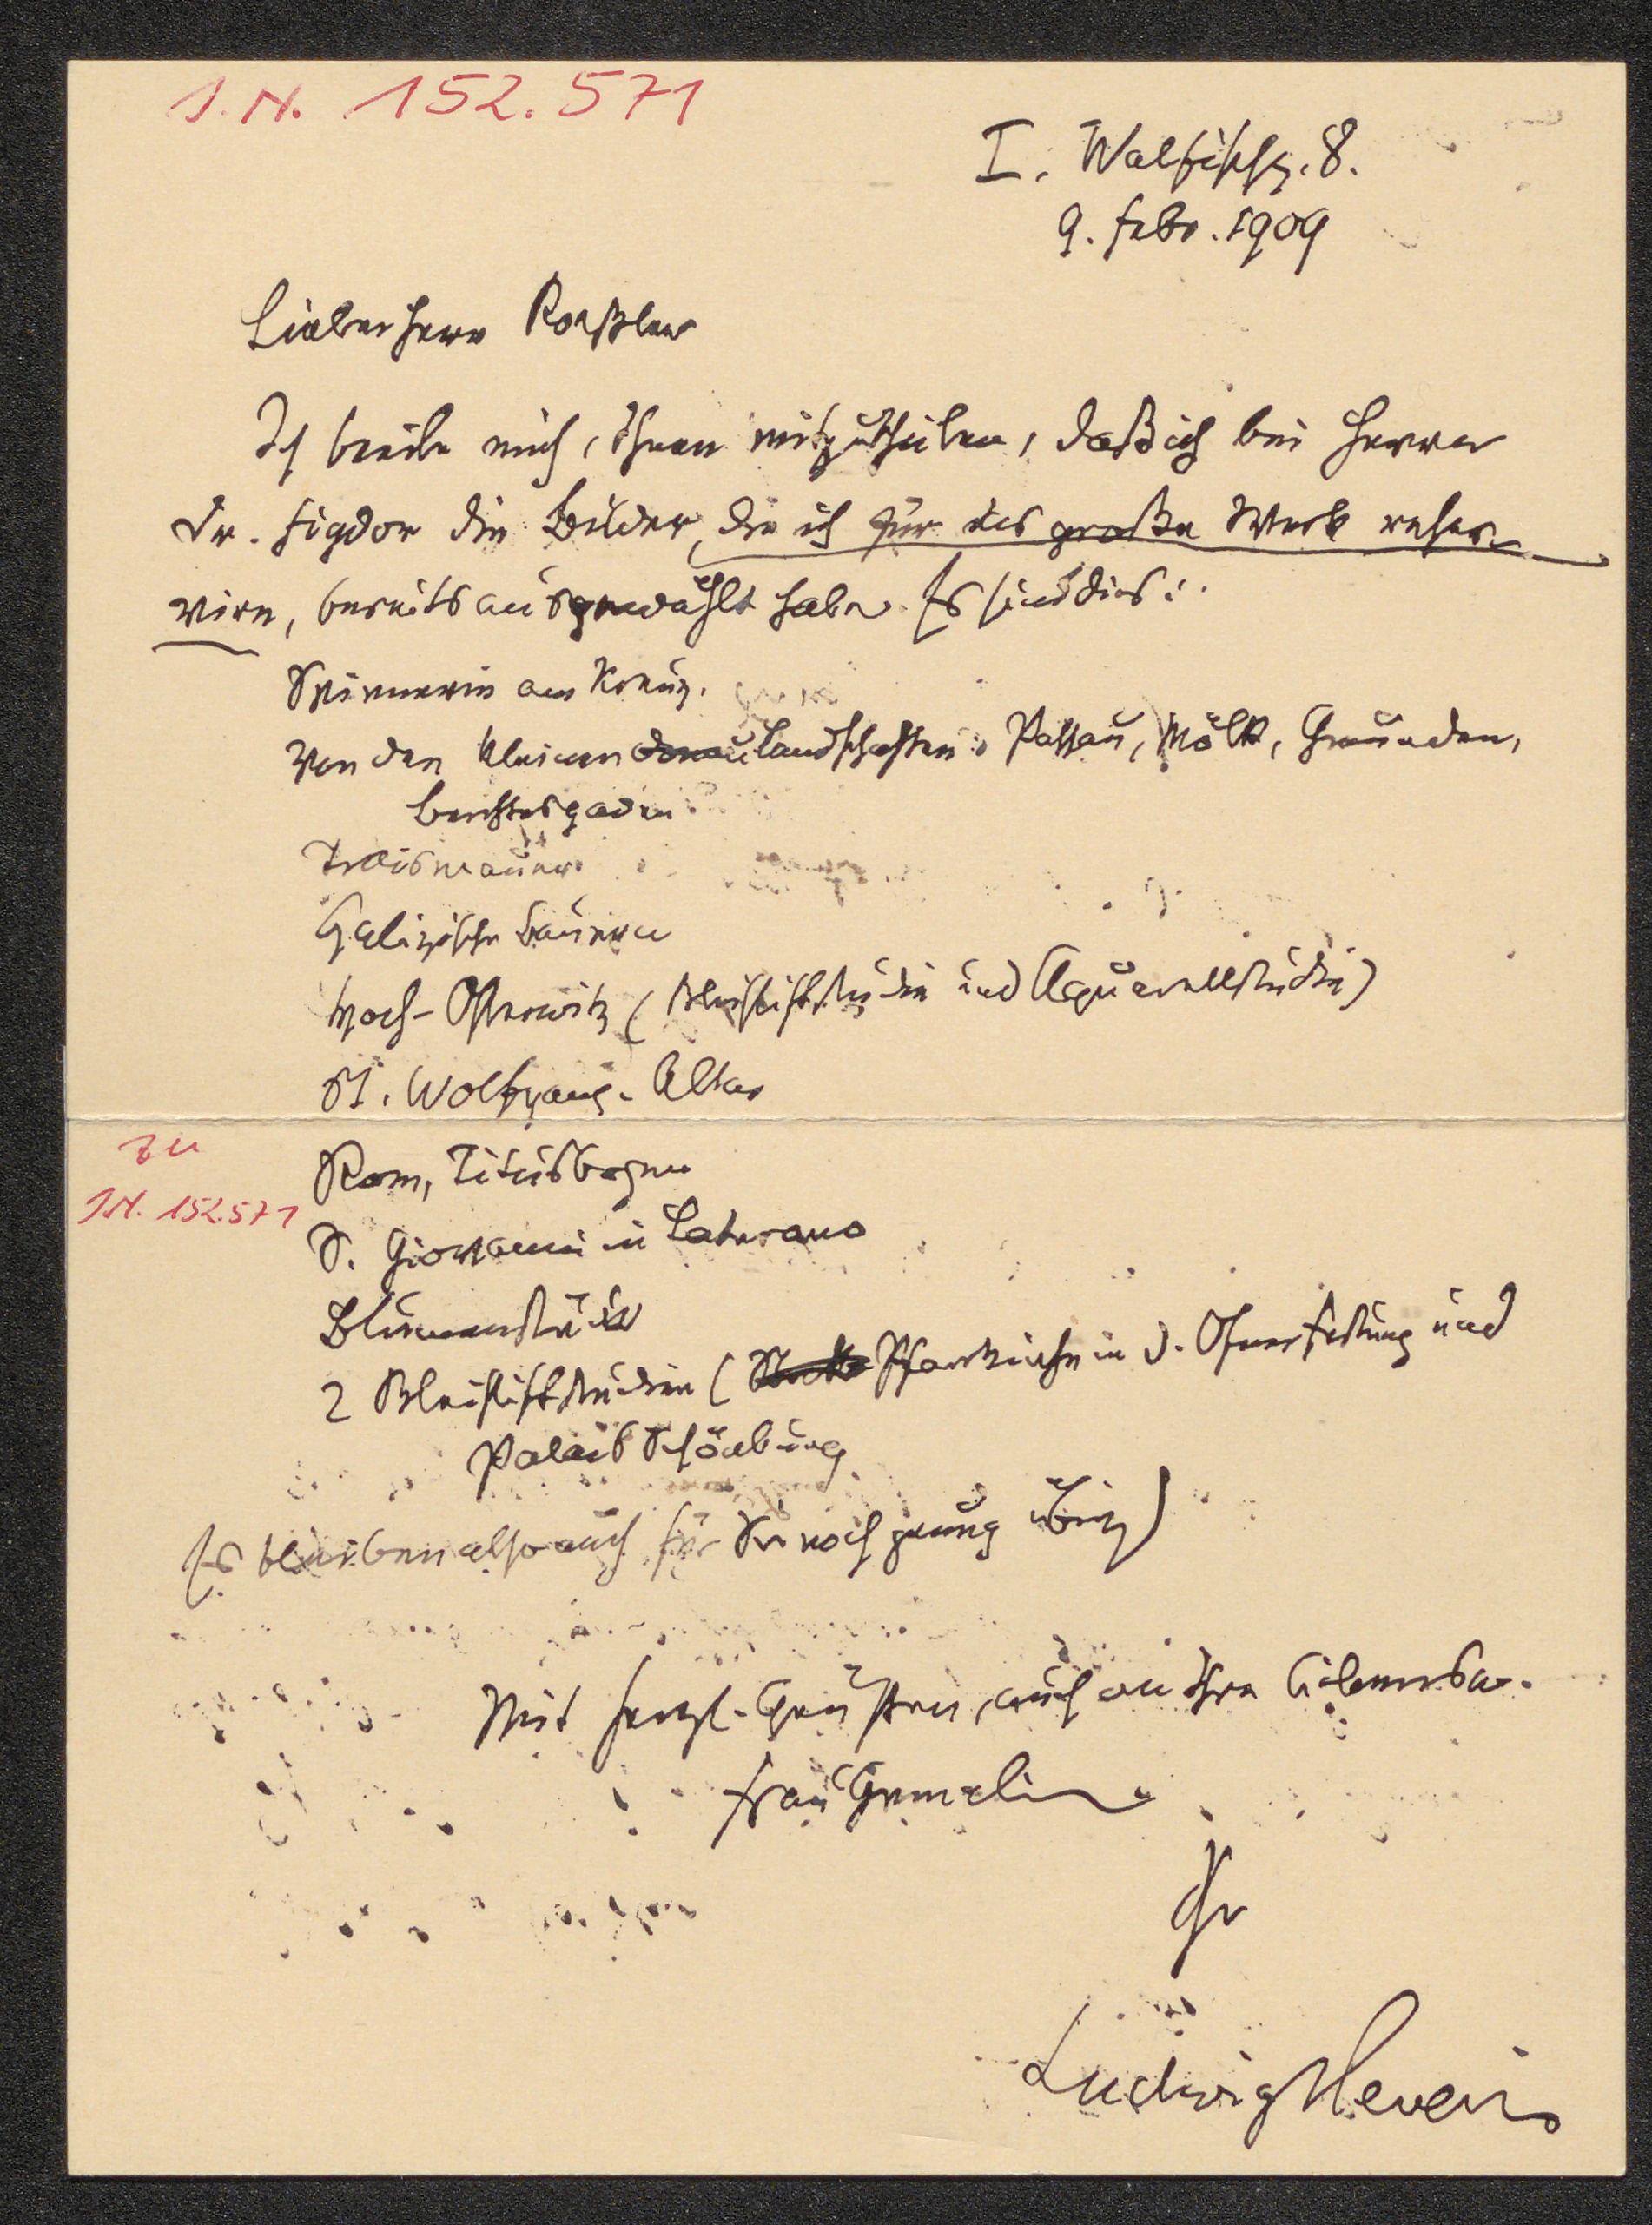 I.N. 152.571
I. Walfischg. 8.
9. Febr. 1909
Lieber Herr Roeßler
Ich beeile mich, Ihnen mitzutheilen, daß ich bei Herrn
Dr. Figdor die Bilder, die ich für das große Werk reser-
vire, bereits ausgewählt habe. Es sind dies:
Spinnerin am Kreuz.
Von den kleinen Donau Landschaften: Passau, Mölk, Gmunden,
Berchtesgaden.
Traismauer
Galizische Bauern
Hoch-Osterwitz (Bleistiftstudie und Aquarellstudie)
St. Wolfgang-Altar
zu
I.N. 152.571
Rom, Titusbogen
S. Giovanni in Laterano
Blumenstück
2 Bleistiftstudien (Pfarrkirche in d. Ofner Festung und
Palais Schönburg
Es bleiben also auch für Sie noch genug übrig)
Mit herzl. Grüßen, auch an Ihre liebensw.
Frau Gemalin
Ihr
Ludwig Hevesi